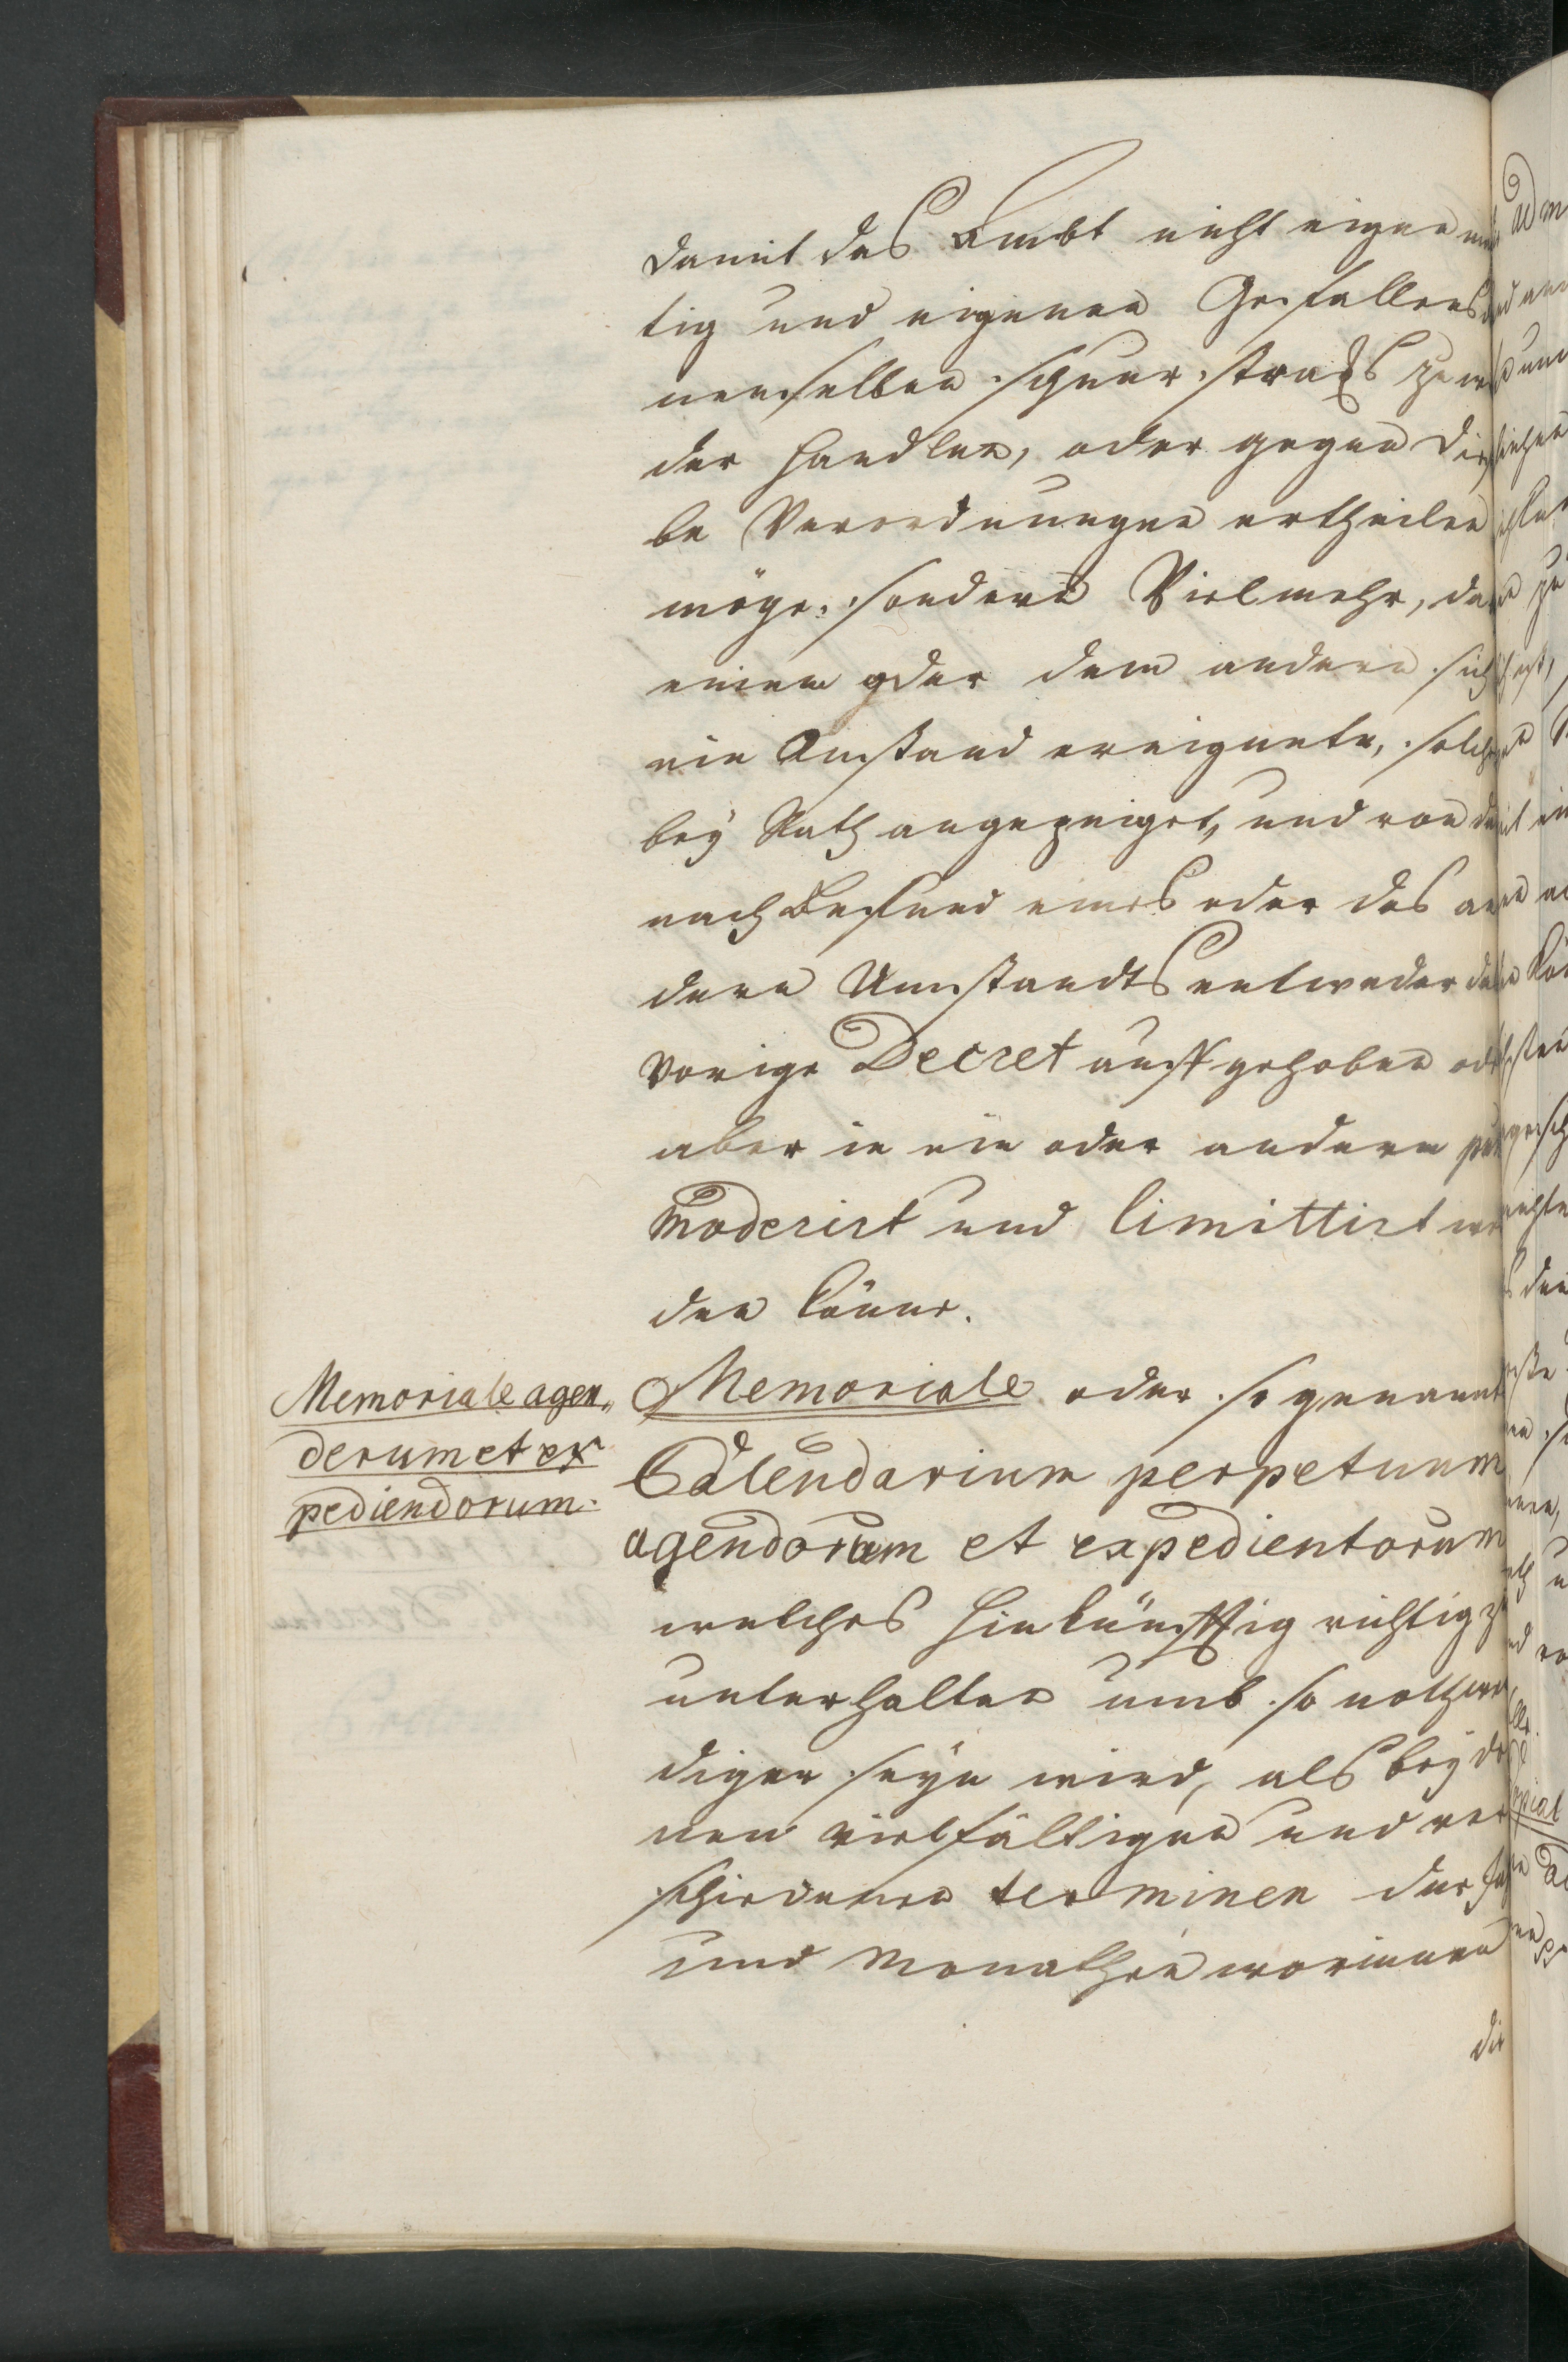 damit das Ambt nicht eigenmäch
tig und eigenen Gefallens de
nenselben schnur stracks zuwi
der handlen, oder gegen diesel
be Verordnungen ertheilen
möge. sondern Vielmehr, da
einem oder dem andern sich
ein Anstand ereignete, solches
bey Rath angezeiget, und von da
nach Befund eines oder des an
dern Umstandts entweder das
vorige Decret auffgehoben oder
aber in ein oder andern
moderirt und limittirt wer
den könne.
Memoriale agen„
dorum et ex
pediendorum.
Memoriale oder so genannt
Calendarium perpetuum
agendorum et expedientorum
welches hinkünfftig richtig zu
unterhalten umb so nothwen
diger seyn wird, als bey de
nen vielfältigen und ver
schiedenen terminen der
und Monathen worinnen
die